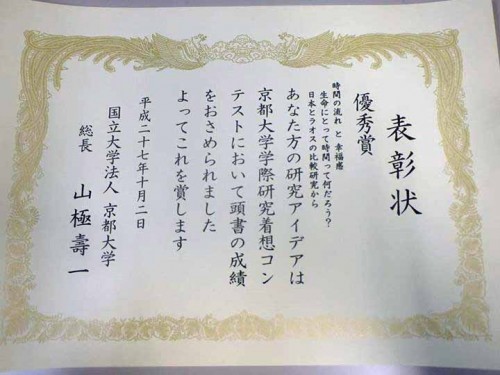 表彰状
優秀賞
時間の流れ と 幸福感
生命にとって時間って何だろう?
日本とラオスの比較研究から
あなた方の研究アイデアは
京都大学学際研究着想コン
テストにおいて頭書の成績
をおさめられました
よってこれを賞します
平成二十七年十月二日
国立大学法人 京都大学
総長 山極壽一